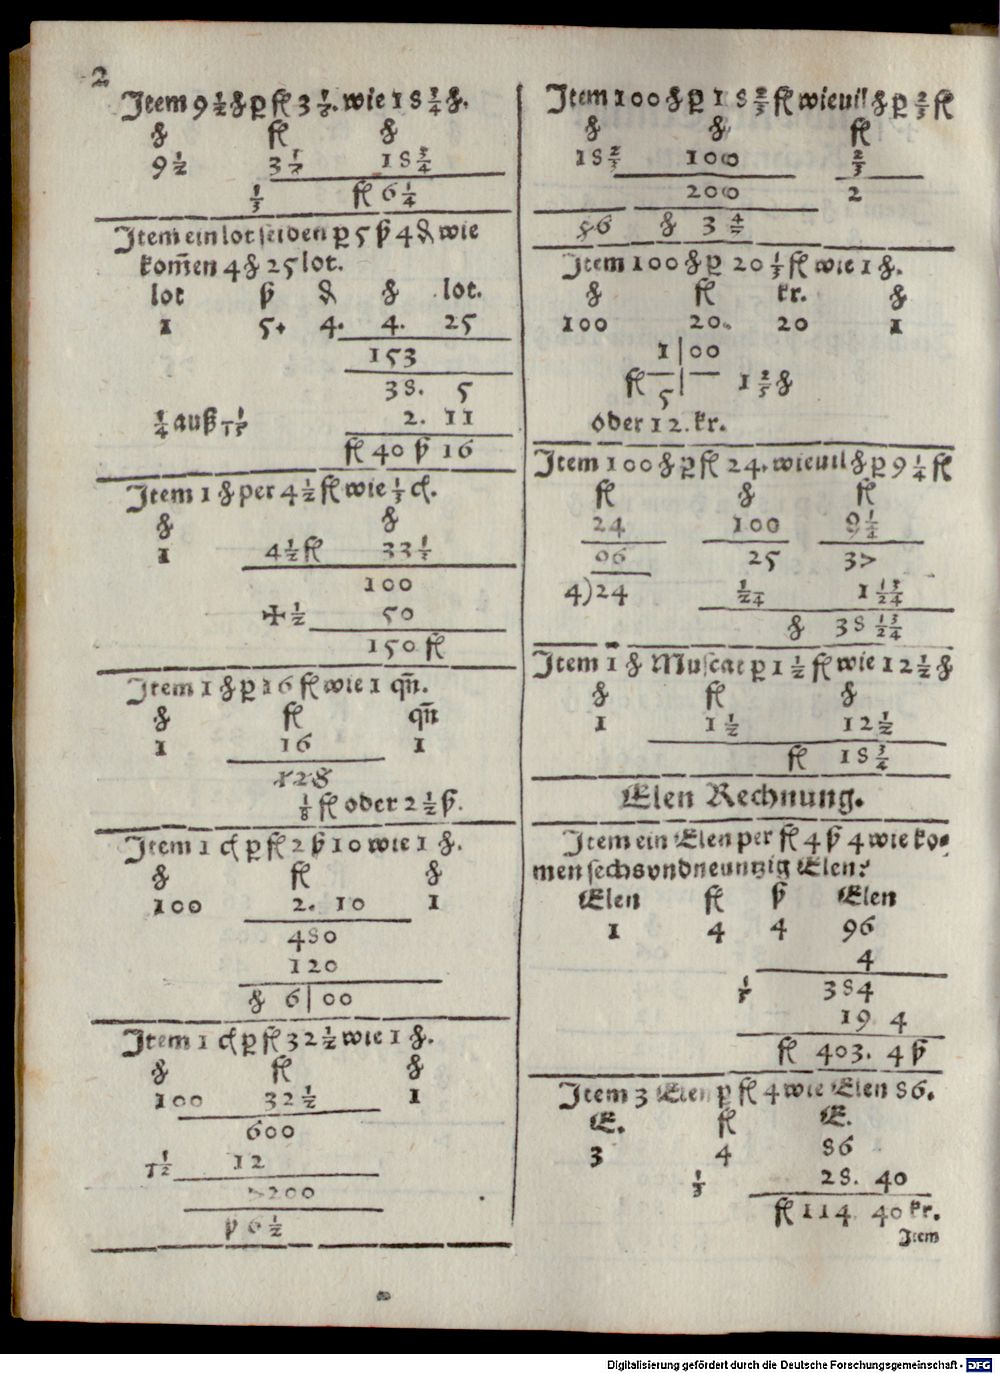 2
Item 9 1/2 ℔ ꝑ fl 3 1/2. wie 18 3/4 ℔.
℔ fl ℔
9 1/2 3 1/2 18 3/4
1/3 fl 6 1/4
Item ein lot seiden ꝑ 5 ß 4 ₰ wie
kom̃en 4 ℔ 25 lot.
lot ß ₰ ℔ lot.
1 5. 4. 4. 25
153
38. 5
1/4 auß 1/15 2. 11
fl 40 ß 16
Item 1 ℔ per 4 1/2 fl wie 1/3 cƚ.
℔ ℔
1 4 1/2 fl 33 1/3
100
✠ 1/2 50
150 fl
Item 1 ℔ ꝑ 16 fl wie 1 qñ.
℔ fl qñ
1 16 1
128
1/8 fl oder 2 1/2 ß.
Item 1 cƚ ꝑ fl 2 ß 10 wie 1 ℔.
℔ fl ℔
100 2. 10 1
480
120
℔ 6|00
Item 1 cƚ ꝑ fl 32 1/2 wie 1 ℔.
℔ fl ℔
100 32 1/2 1
600
1/12 12
7200
ß 6 1/2
Item 100 ℔ ꝑ 18 2/3 fl wieuil ℔ ꝑ 2/3 fl
℔ ℔ fl
18 2/3 100 2/3
200 2
56 ℔ 3 4/7
Item 100 ℔ ꝑ 20 1/3 fl wie 1 ℔.
℔ fl kr. ℔
100 20. 20 1
1|00
fl 5| 1 2/5 ℔
oder 12. kr.
Item 100 ℔ ꝑ fl 24. wieuil ℔ ꝑ 9 1/4 fl
fl ℔ fl
24 100 9 1/4
96 25 37
4)24 1/24 1 13/24
℔ 38 13/24
Item 1 ℔ Muscat ꝑ 1 1/2 fl wie 12 1/2 ℔
℔ fl ℔
1 1 1/2 12 1/2
fl 18 3/4
Elen Rechnung.
Item ein Elen per fl 4 ß 4 wie ko⸗
men sechsvndneuntzig Elen?
Elen fl ß Elen
1 4 4 96
4
1/5 384
19 4
fl 403. 4 ß
Item 3 Elen ꝑ fl 4 wie Elen 86.
E. fl E.
3 4 86
1/3 28. 40
fl 114 40 kr.
Item
Digitalisierung gefördert durch die Deutsche Forschungsgemeinschaft - DFG